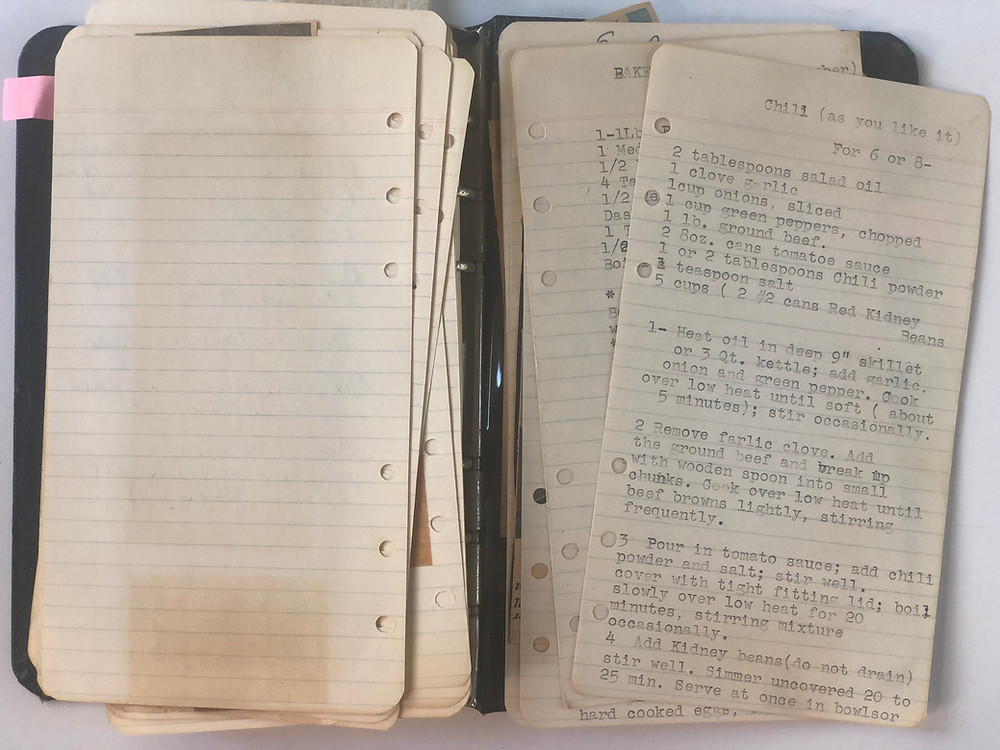 BAKE
ber)
1-1Lb
1 Med
1/2
4 Ta
1/2
Das
1 T
1/2
Boi
*
B
w
*
hard cooked eggs,
Chili (as you like it)
For 6 or 8-
2 tablespoons salad oil
1 clove garlic
1cup onions, sliced
1 cup green peppers, chopped
1 lb. ground beef.
2 8oz. cans tomatoe sauce
1 or 2 tablespoons Chili powder
1 teaspoon salt
5 cups ( 2 #2 cans Red Kidney
Beans
1- Heat oil in deep 9" skillet
or 3 Qt. kettle; add garlic.
onion and green pepper. Cook
over low heat until soft ( about
5 minutes); stir occasionally.
2 Remove farlic clove. Add
the ground beef and break up
with wooden spoon into small
chunks. Cook over low heat until
beef browns lightly, stirring
frequently.
3 Pour in tomato sauce; add chili
powder and salt; stir well.
cover with tight fitting lid; boil
slowly over low heat for 20
minutes, stirring mixture
occasionally.
4 Add Kidney beans(do not drain)
stir well. Simmer uncovered 20 to
25 min. Serve at once in bowlsor